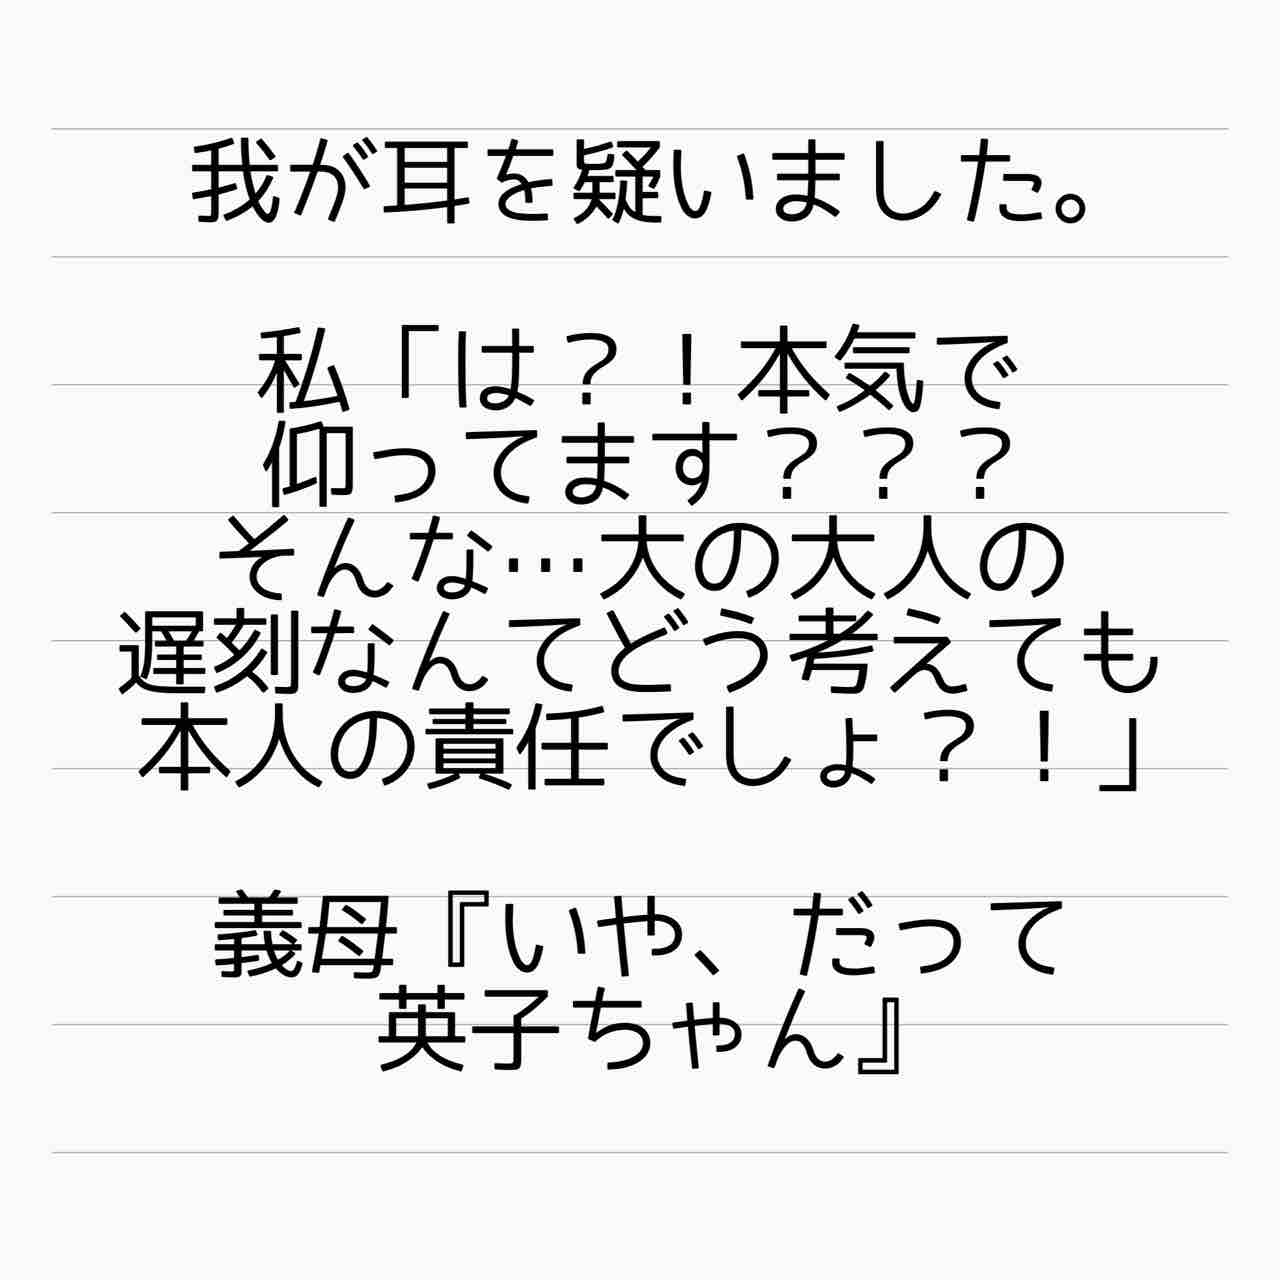 我が耳を疑いました。
私「は？！本気で
仰ってます？？？
そんな…大の大人の
遅刻なんてどう考えても
本人の責任でしょ？！」
義母『いや、だって
英子ちゃん』